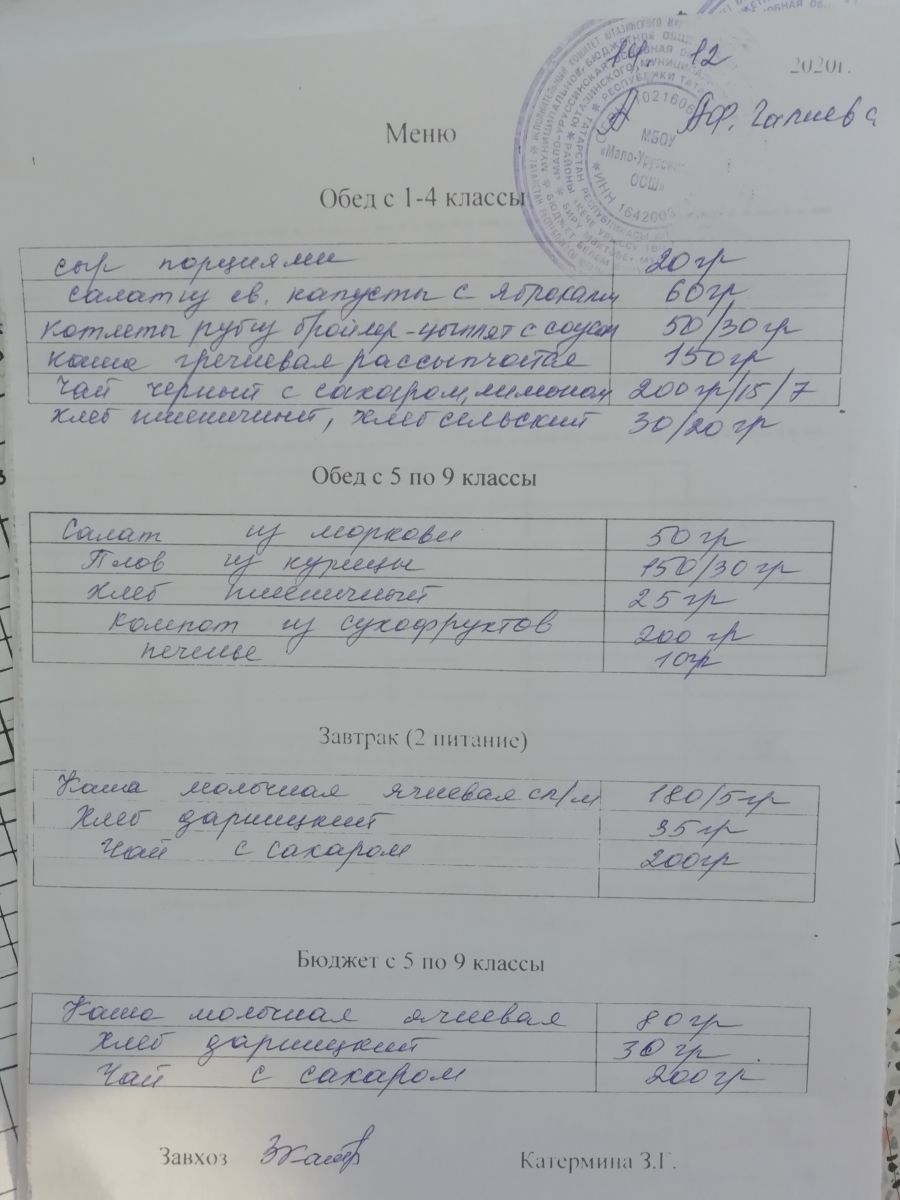 14. 12 2020г.
А.Ф. Галиева
МБОУ
«Мало-Уруссин
ОСШ»
*ИНН 1642003
Меню
Обед с 1-4 классы
сыр порциями 20гр
салат из св. капусты с яблоками 60гр
котлеты руб из бройлер-цыплят с соусом 50/30гр
каша гречневая рассыпчатая 150гр
Чай черный с сахаром, лимоном 200гр/15/7
хлеб пшеничный, хлеб сельский 30/20гр
Обед с 5 по 9 классы
Салат из моркови 50гр
Плов из курицы 150/30гр
хлеб пшеничный 25гр
Компот из сухофруктов 200 гр
печенье 10гр
Завтрак (2 питание)
Каша молочная ячневая сл/м 180/5гр
Хлеб дарницкий 35гр
Чай с сахаром 200гр
Бюджет с 5 по 9 классы
Каша молочная ячневая 80гр
Хлеб дарницкий 30гр.
Чай с сахаром 200гр
Завхоз Катермина З.Г.